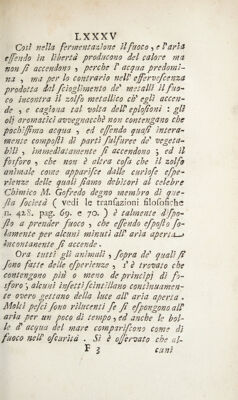 LXXXV
Così nella fermentazione il fuoco, e l'aria
essendo in libertà producono del calore ma
non si accendono, perche l'acqua predomi-
na, ma per lo contrario nell'effervescenza
prodotta dal scioglimento de' metalli il fuo-
co incontra il zolfo metallico ch'egli accen-
de, e cagiona tal volta dell'esplosioni: gli
olj aromatici avvegnacchè non contengano che
pochissimo acqua, ed essendo quasi intera-
mente composti di parti sulfuree de' vegeta-
bili, immediatamente si accendono; ed il
fosforo, che non è altra cosa che il zolfo
animale come apparisce dalle curiose espe-
rienze delle quali siamo debitori al celebre
Chimico M. Gofredo degno membro di que-
sta Società (vedi le transazioni filosofiche
n. 428. pag. 69. e 70.) è talmente dispo-
sto a prender fuoco, che essendo esposto so-
lamente per alcuni minuti all'aria aperta
incontanente si accende.
Ora tutti gli animali, sopra de' quali si
sono fatte delle esperienze, s'è trovato che
contengono più o meno de principj di fo-
sforo; alcuni insetti scintillano continuamen-
te overo gettano della luce all'aria aperta.
Molti pesci sono rilucenti se si espongono all'
aria per un poco di tempo, ed anche le bol-
le d'acqua del mare compariscono come di
fuoco nell'oscurità. Si è osservato che al-
F 3 cuni